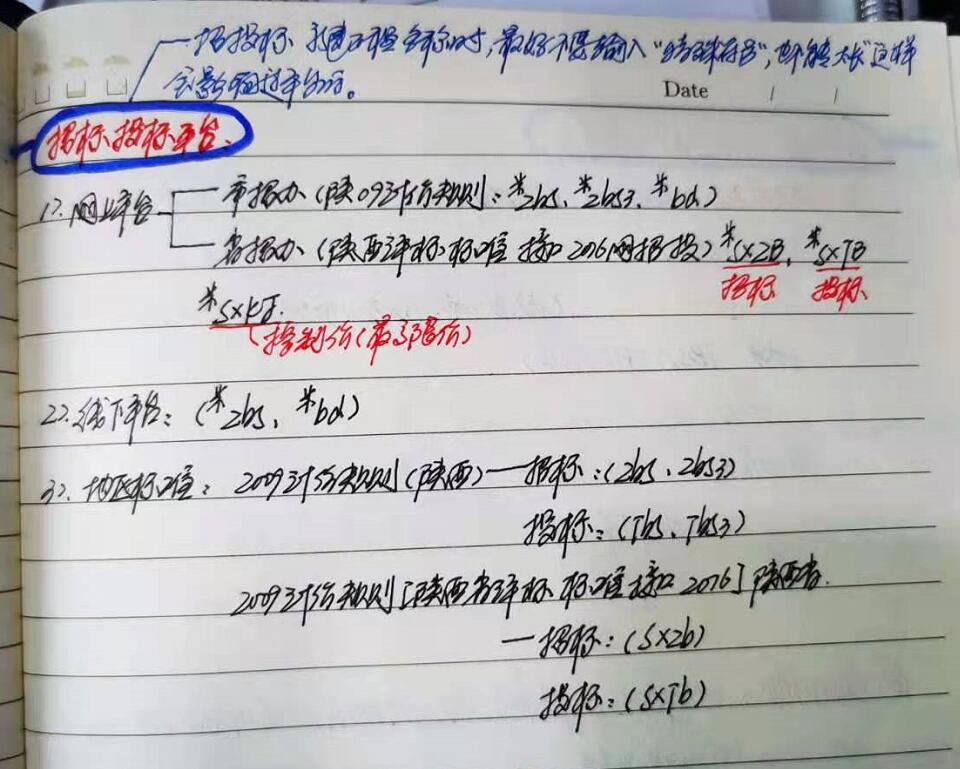 招投标 新建工程名称时,最好不要输入"特殊符号",也不能太长"这样
会影响过平台的。
Date / /
招标.投标平台、
1>. 网上平台 市招办(陕09计价规则:*zbs、*zbs3、*bd)
省招办(陕西评标标准接口2016网招投)*SXZB、*SXTB
招标 投标
*SXKJ.
控制价(最高限价)
2>.线下平台:(*zbs、*bd)
3>. 地区标准:2009计价规则(陕西)—招标:(zbs、zbs3)
投标:(Tbs、Tbs3)
2009计价规则[陕西省评标 标准接口2016]陕西省.
—招标:(SXzb)
投标:(SXTb)